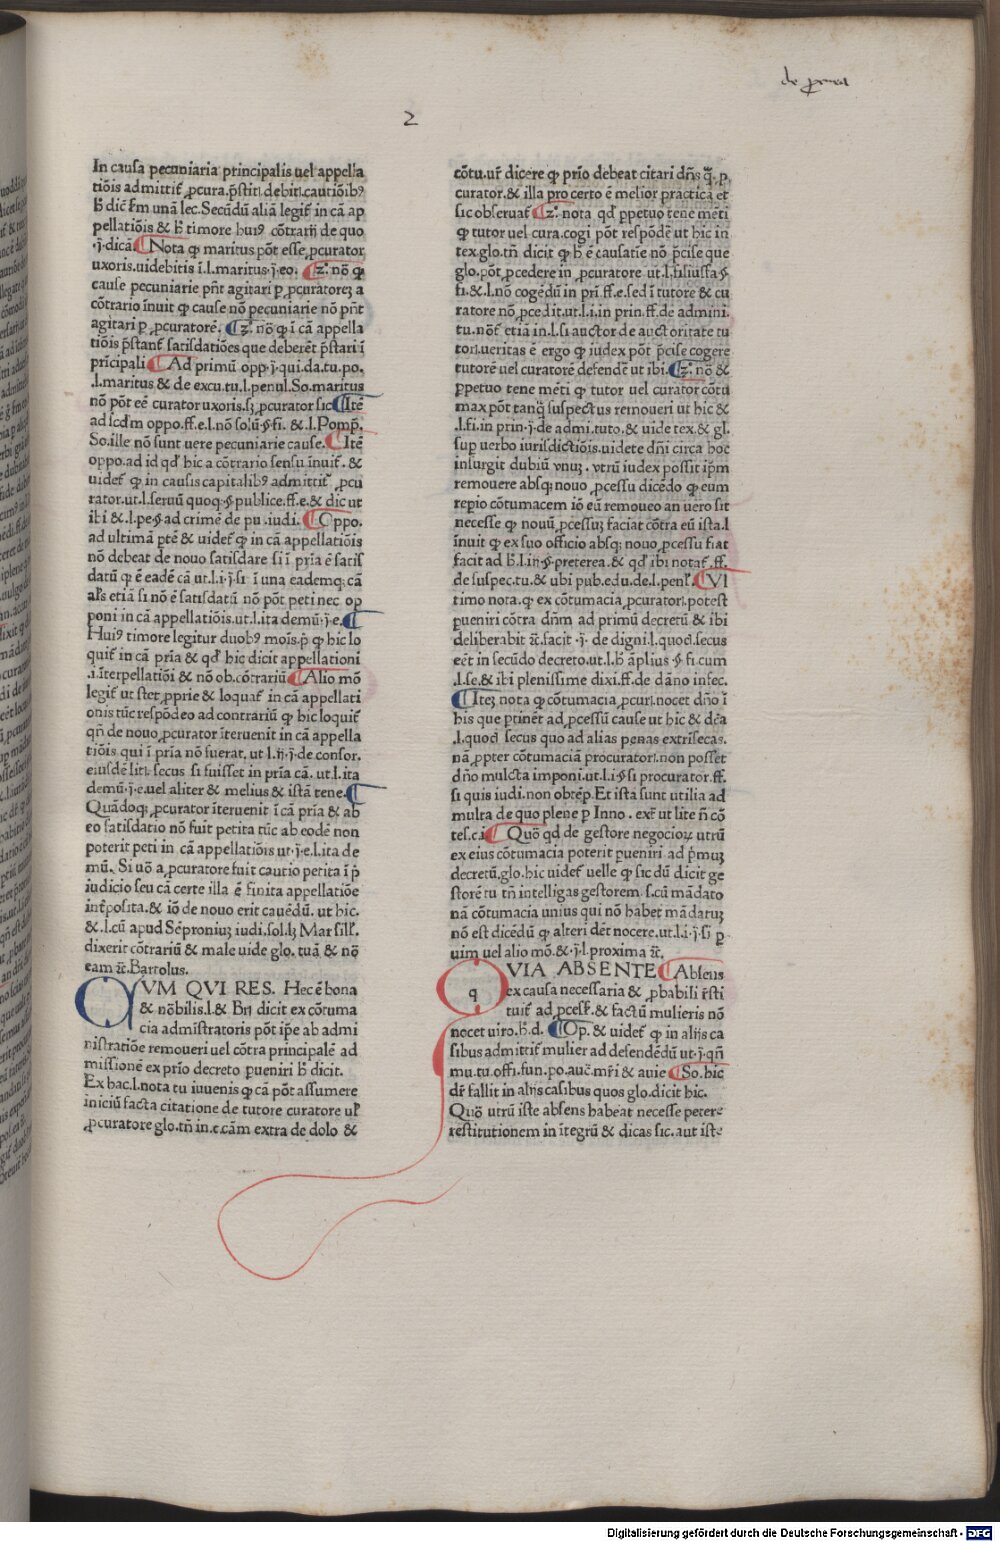 de ꝓcura
2
In causa pecuniaria principalis uel appella
tiõis admittit̃ ꝓcura.p̃stiti debiti cautiõibꝰ
h̃ dic̃ ẽm unã lec. Secũdũ aliã legit̃ in cã ap
pellatiõis & h̃ timore huiꝰ cõtrarij de quo
.j.dicã. Nota ꝙ maritus põt esse ꝓcurator
uxoris.uidebitis ĩ.l.maritus.j.eo. z̊. nõ ꝙ
cause pecuniarie pñt agitari p ꝓcuratoreȝ a
cõtrario ĩnuit ꝙ cause nõ pecuniarie nõ pñt
agitari p ꝓcuratorẽ. z̊. nõ ꝙ ĩ cã appella
tiõis p̃stant̃ satisdatiões que deberẽt p̃stari ĩ
pricipali Ad primũ opp.j.qui da.tu.po.
.l.maritus & de excu.tu.l.penul. So.maritus
nõ põt eẽ curator uxoris.sȝ ꝓcurator sic Itẽ
ad scd̃m oppo.ff.e.l.nõ solũ.§.fi. & .l. Pomp̃.
So.ille nõ sunt uere pecuniarie cause. Itẽ
oppo.ad id qđ hic a cõtrario sensu ĩnuit̃. &
uidet̃ ꝙ in causis capitalibꝰ admittit̃ ꝓcu
rator.ut.l.seruũ quoq.§.publice.ff.e.& dic ut
ibi & .l.pe.§.ad crimẽ de pu.iudi. Oppo.
ad ultimã ptẽ & uidet̃ ꝙ in cã appellatiõis
nõ debeat de nouo satisdare si ĩ pria ẽ satis
datũ ꝙ ẽ eadẽ cã ut.l.i.j.si ĩ una eademq; cã
al̃s etiã si nõ ẽ satisdatũ nõ põt peti nec op
poni in cã appellatiõis.ut.l.ita demũ.j.e.
Huiꝰ timore legitur duobꝰ mõis.p̃ ꝙ hic lo
quit̃ in cã pria & qđ hic dicit appellationi
.i.ĩterpellatiõi & nõ ob.cõtrariũ Alio mõ
legit̃ ut stet ꝓprie & loquat̃ in cã appellati
onis tũc respõdeo ad contrariũ ꝙ hic loquit̃
qñ de nouo ꝓcurator ĩteruenit in cã appella
tiõis qui ĩ pria nõ fuerat. ut.l.fi.j.de consor.
eiusdẽ liti. secus si fuisset in pria cã. ut.l.ita
demũ.j.e.uel aliter & melius & istã tene.
Quãdoq; ꝓcurator ĩteruenit ĩ cã pria & ab
eo satisdatio nõ fuit petita tũc ab eodẽ non
poterit peti in cã appellatiõis ut.j.e.l.ita de
mũ. Si uõ a ꝓcuratore fuit cautio petita ĩ p̃
iudicio seu cã certe illa ẽ finita appellatiõe
int̃posita.& iõ de nouo erit cauẽdũ. ut hic.
& .l.cũ apud Sẽproniuȝ iudi.sol.lȝ Mar sill̃.
dixerit cõtrariũ & male uide glo. tuã & nõ
eam ⁊c̃. Bartolus.
QVM QVI RES. Hec ẽ bona
& nõbilis.l.& Brĩ dicit ex cõtuma
cia admistratoris põt ip̃e ab admi
nistratiõe remoueri uel cõtra principalẽ ad
missionẽ ex prio decreto ꝓueniri h̃ dicit.
Ex hac.l.nota tu iuuenis ꝙ cã põt assumere
iniciũ facta citatione de tutore curatore ul̃
ꝓcuratore glo.tñ in.c.cãm extra de dolo &
cõtu.ur̃ dicere ꝙ prio debeat citari dñs q̃. ꝓ
curator.& illa pro certo ẽ melior practica et
sic obseruat̃ z̊. nota qđ ppetuo tene mẽti
ꝙ tutor uel cura.cogi põt respõdẽ ut hic in
tex.glo.tñ dicit ꝙ h̃ ẽ causatie nõ p̃cise que
glo.põt ꝓcedere in ꝓcuratore ut.l.filiussa.§.
fi.& .l.nõ cogẽdũ in pri ff.e.sed ĩ tutore & cu
ratore nõ ꝓcedit.ut.l.i.in prin.ff.de admini.
tu.nõt̃ etiã in.l.si auctor de auctoritate tu
tori.ueritas ẽ ergo ꝙ iudex põt p̃cise cogere
tutorẽ uel curatorẽ defendẽ ut ibi. z̊. nõ &
ppetuo tene mẽti ꝙ tutor uel curator cõtu
max põt tanq̃ suspectus remoueri ut hic &
.l.fi.in prin.j.de admi.tuto.& uide tex.& gl.
sup uerbo iurisdictiõis.uidete dñi circa hoc
insurgit dubiũ unuȝ. utrũ iudex possit ip̃m
remouere absq; nouo ꝓcessu dicẽdo ꝙ eum
repio cõtumacem iõ eũ remoueo an uero sit
necesse ꝙ nouũ ꝓcessuȝ faciat cõtra eũ ista.l
ĩnuit ꝙ ex suo officio absq; nouo ꝓcessu fiat
facit ad h̃.l.in.§.preterea.& qđ ibi notat̃.ff.
de suspec.tu.& ubi pub.edu.de.l.penl̃. Vl
timo nota.ꝙ ex cõtumacia ꝓcuratori.potest
ꝓueniri cõtra dñm ad primũ decretũ & ibi
deliberabit ⁊c̃.facit .j. de digni.l.quod.secus
eẽt in secũdo decreto.ut.l.h̃ ãplius.§.fi cum
.l.se.& ibi plenissime dixi.ff.de dãno infec.
Iteȝ nota ꝙ cõtumacia ꝓcuri.nocet dño ĩ
his que ptinẽt ad ꝓcessũ cause ut hic & dẽa
.l.quod secus quo ad alias penas extrĩsecas.
nã ꝓpter cõtumaciã procuratori.non posset
dño mulcta imponi ut.l.i.§.si procurator.ff.
si quis iudi.non obtẽp. Et ista sunt utilia ad
multa de quo plene p Inno. ext̃ ut lite ñ cõ
tes.c.i. Quõ qđ de gestore negocioꝝ utrũ
ex eius cõtumacia poterit ꝓueniri ad p̃muȝ
decretũ.glo.hic uidet̃ uelle ꝙ sic dũ dicit ge
storẽ tu tñ intelligas gestorem.s.cũ mãdato
nã cõtumacia unius qui nõ habet mãdatuȝ
nõ est dicẽdũ ꝙ alteri det nocere.ut.l.i.j.si p
uim uel alio mõ.& .j.l.proxima ⁊c̃.
q
QVIA ABSENTE Absens
ex causa necessaria & ꝓbabili r̃sti
tuit̃ ad ꝓcess̃. & factũ mulieris nõ
nocet uiro.h̃.d. Op. & uidet̃ ꝙ in alijs ca
sibus admittit̃ mulier ad defendẽdũ ut.j.qñ
mu.tu.offi.fun.po.auc̃.mr̃i & auie So.hic
dr̃ fallit in alijs casibus quos glo.dicit hic.
Quõ utrũ iste absens habeat necesse petere
restitutionem in ĩtegrũ & dicas sic.aut iste
Digitalisierung gefördert durch die Deutsche Forschungsgemeinschaft - DFG